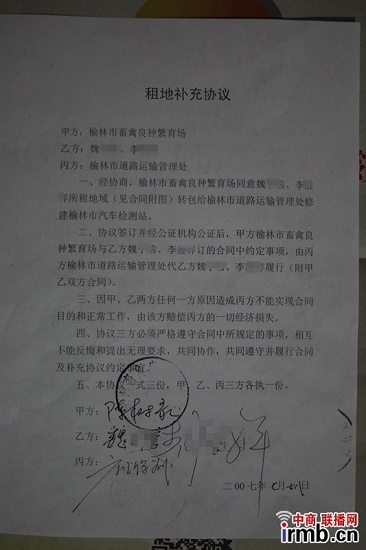 租地补充协议
甲方：榆林市畜禽良种繁育场
乙方：魏 、李
丙方：榆林市道路运输管理处
一、经协商，榆林市畜禽良种繁育场同意魏 、李
所租地域（见合同附图）转包给榆林市道路运输管理处修
建榆林市汽车检测站。
二、协议签订并经公证机构公证后，甲方榆林市畜禽良
种繁育场与乙方魏 、李 订的合同中约定事项，由丙
方榆林市道路运输管理处代乙方魏 、李 履行（附甲
乙双方合同）。
三、因甲、乙两方任何一方原因造成丙方不能实现合同
目的和正常工作，由该方赔偿丙方的一切经济损失。
四、协议三方必须严格遵守合同中所规定的事项，相互
不能反悔和提出无理要求，共同协作，共同遵守并履行合同
及补充协议约定事宜。
五、本协议一式三份，甲、乙、丙三方各执一份。
甲方：
乙方：魏
丙方：
二00七年七月 日
中商·联播网
irmb.cn